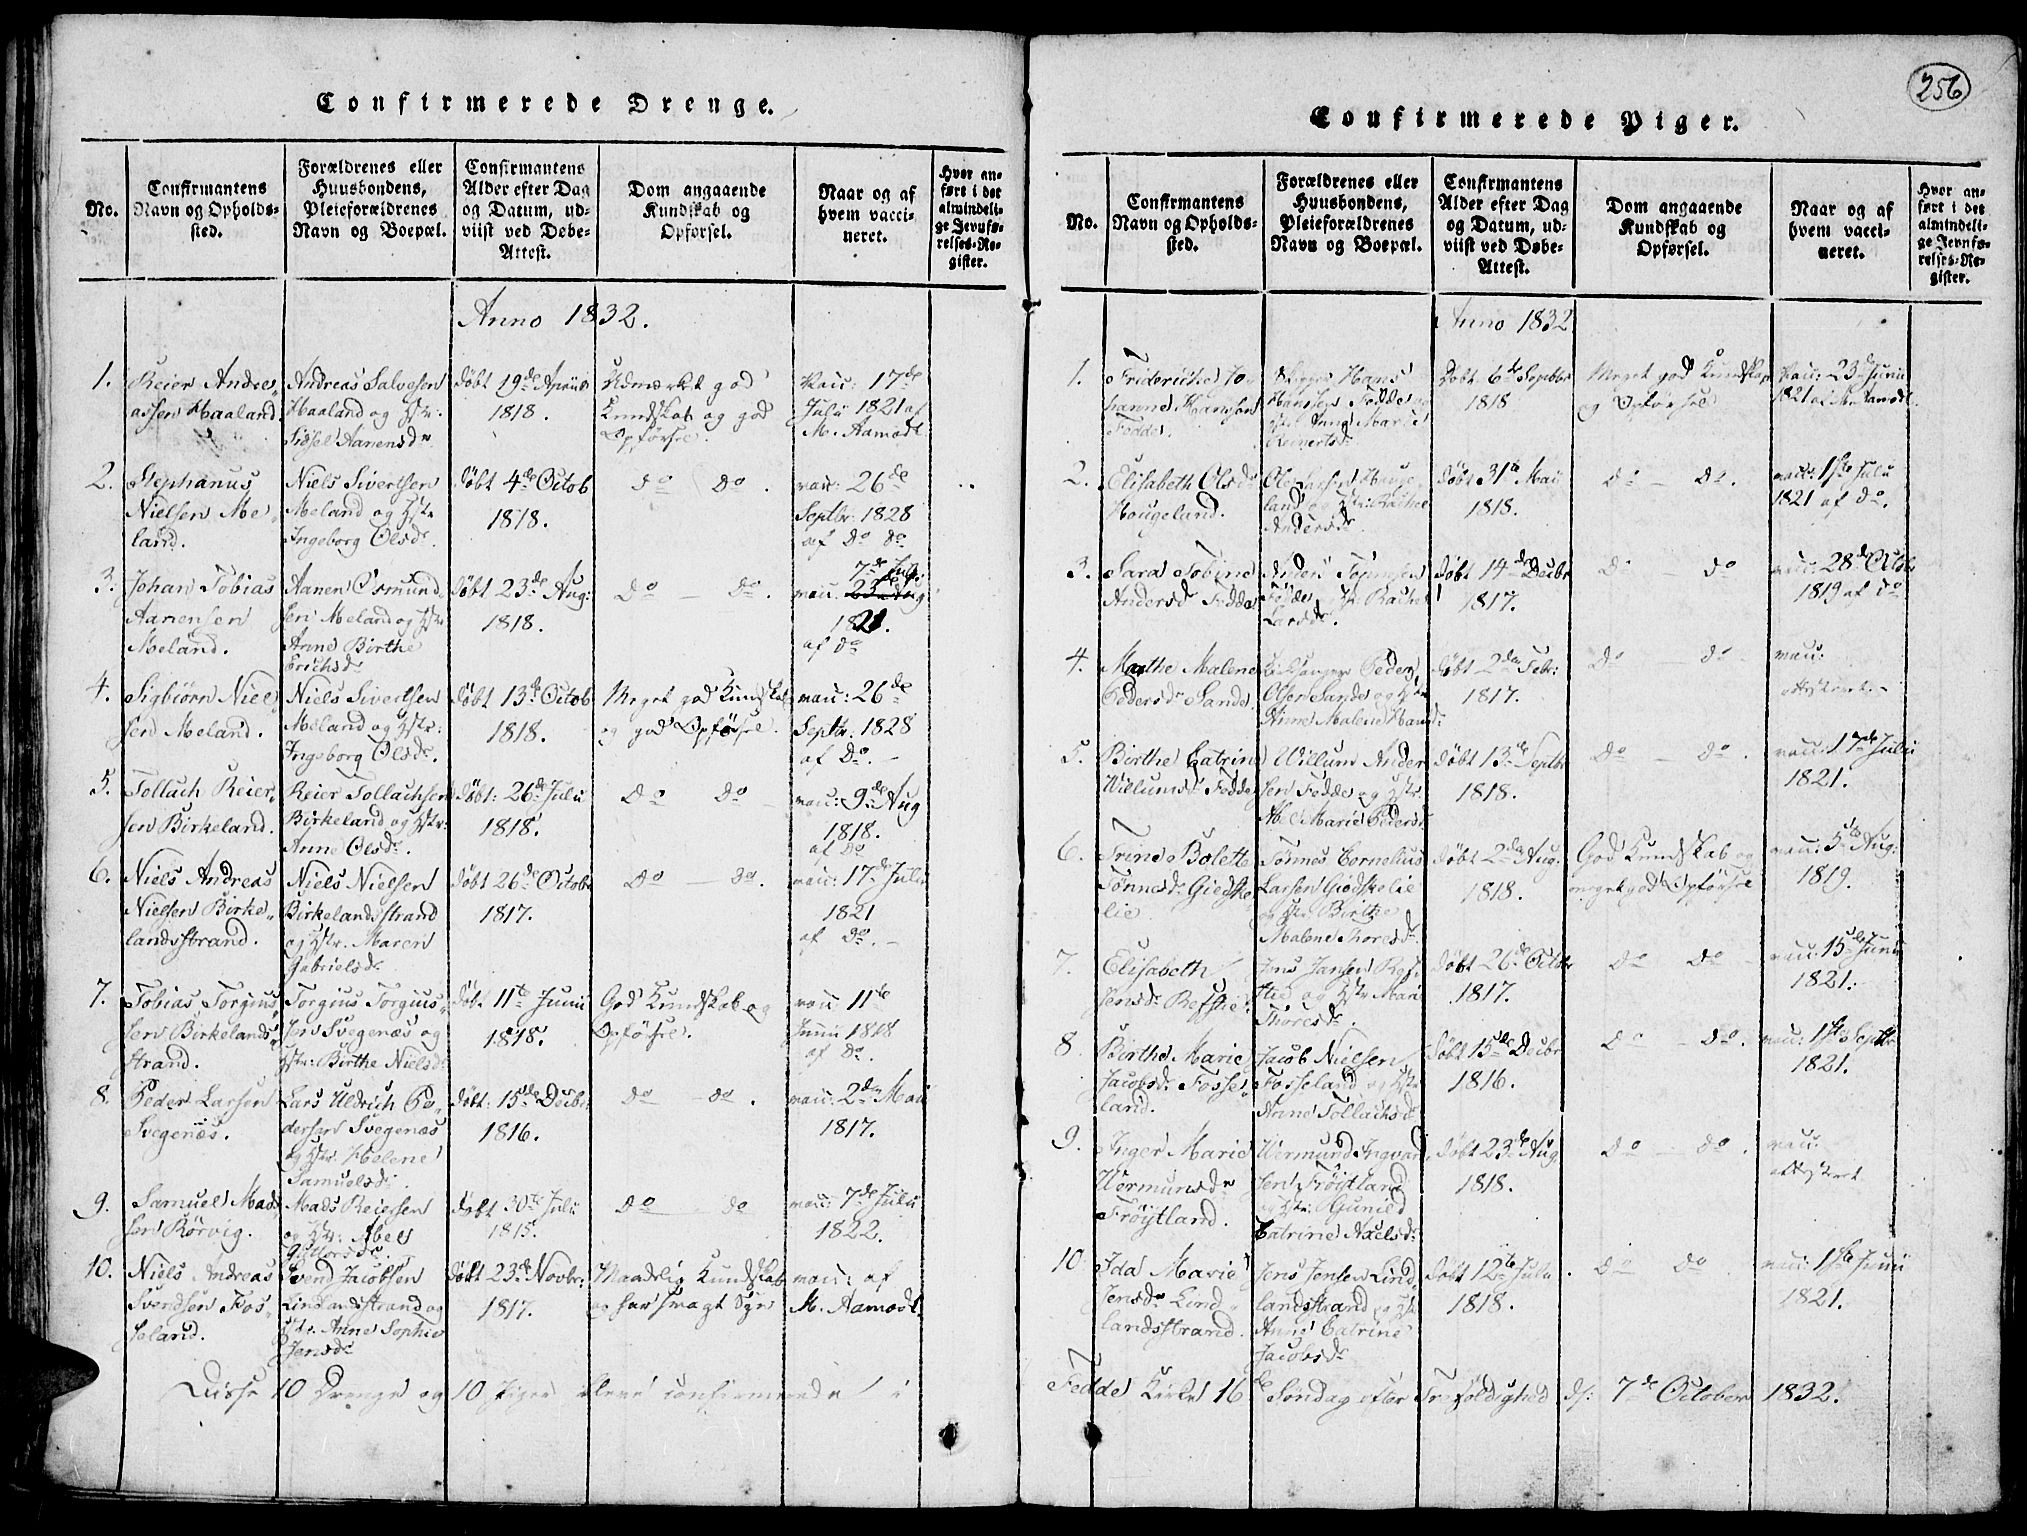 Confirmerede Drenge.
No.
Confirmantens
Navn og Opholds-
sted.
Forældrenes eller
Huusbondens,
Pleieforældrenes
Navn og Boepæl.
Confirmantens
Alder efter Dag
og Datum, ud-
viist ved Døbe-
Attest.
Dom angaaende
Kundskab og
Opførsel.
Naar og af
hvem vacci-
neret.
Hvor an-
ført i det
almindeli-
ge Jevnfø-
relses-Re-
gister.
Anno 1832.
1.
Reier Andre-
assen Haaland
Andreas Salvesen
Haaland og Hstr:
Sidsel Aanensdr
døbt 19de April
1818.
Udmærket god
Kundskab og god
Opførsel.
Vacc: 17de
Julii 1821 af
M. Aamodt
2.
Stephanus
Nielsen Me-
land.
Niels Sivertsen
Meland og Hstr
Ingeborg Olsdr.
døbt 4de Octob
1818.
do do.
vacc: 26de
Septbr: 1828
af do do
3.
Johan Tobias
Aanensen
Meland.
Aanen Osmund-
sen Meland og Hstr
Anne Birthe
Erichsdr
døbt 23de Aug:
1818.
do — do.
7de Julii
vacc. 23de Aug
1821.
af do
4.
Sigbiørn Niel-
sen Meland.
Niels Sivertsen
Meland og Hstr:
Ingeborg Olsdr.
døbt 13de Octob
1818.
Meget god Kundskab
og god Opførsel.
vacc: 26de
Septbr: 1828
af do.
5.
Tollach Reier-
sen Birkeland.
Reier Tollachsen
Birkeland og Hstr:
Anne Olsdr.
døbt: 26de Julii
1818.
do do
vacc: 9de Aug
1818.
af do
6.
Niels Andreas
Nielsen Birke-
landsstrand.
Niels Nielsen
Birkelandsstrand
og Hstr. Maren
Gabrielsdr
døbt 26de Octobr
1817.
do — do.
vacc: 17de Julii
1821
af do.
7.
Tobias Torgius-
sen Birkelands-
strand.
Torgius Torgius-
sen Svegenæs og
Hstr: Birthe Nielsdr
døbt 11te Junii
1818.
God Kundskab og
Opførsel.
vacc 11te
Junii 1818
af do.
8.
Peder Larsen
Svegenæs.
Lars Uldrich Pe-
dersen Svegenæs
og Hstr. Helene
Samuelsdr.
døbt: 15de Decbr
1816.
do — do.
vacc: 2den Mai
1817.
9.
Samuel Mad-
sen Rørvig.
Mads Reiersen
og Hstr: Abel
Guttorsdr.
døbt 30te Julii
1815.
do — do
vacc: 7de Julii
1822.
10.
Niels Andreas
Svendsen Fos-
seland.
Svend Jacobsen
Lindlandsstrand og
Hstr. Anne Sophie
Jensdr
døbt 23de Novbr:
1817.
Maadelig Kundskab
og har svagt Syn
vacc: af
M. Aamodt.
Disse 10 Drenge og 10 Piger bleve confirmerede i
256
Confirmerede Piger.
No.
Confirmantens
Navn og Opholds-
sted.
Forældrenes eller
Huusbondens,
Pleieforældrenes
Navn og Boepæl.
Confirmantens
Alder efter Dag
og Datum, ud-
viist ved Døbe-
Attest.
Dom angaaende
Kundskab og
Opførsel.
Naar og af
hvem vacci-
neret.
Hvor an-
ført i det
almindeli-
ge Jevnfø-
relses-Re-
gister.
Anno 1832
1.
Friderikke Jo-
hanne Hansen
Fedde.
Hans
Hansen Fedde og
Hstr Anne Marie
Reinertsdr
Døbt 6te Septbr
1818
Meget god Kundskab
og Opførsel
Vacc: 23de Junii
1821 af M. Aamodt.
2.
Elisabeth Olsdr
Hougeland.
Ole Larsen Houge-
land og Hstr: Rachel
Andersdr
døbt 31te Mai
1818.
do — do.
vacc: 1ste Julii
1821 af do.
3.
Sara Tobine
Andersdr Fedde
Anders Tønnesen
Fedde Hstr Rachel
Larsdr.
døbt 14de Decbr
1817.
do — do
vacc: 28de Octobr
1819 af do
4.
Marthe Malene
Pedersdr Sande
Kirkesanger Peder
Olsen Sande og Hstr
Anne Malene Hansdr
døbt 2den Febr:
1817.
do do
vacc.
attesteret
5.
Birthe Catrine
Willumsdr Fedde
Willum Ander-
sen Fedde og Hstr.
Abel Marie Pedersdr
døbt 13de Septbr
1818.
do — do.
vacc: 17de Julii
1821.
6.
Trine Bolette
Tønnesdr Giedske-
lie.
Tønnes Cornelius
Larsen Giedskelie
og Hstr Birthe
Malene Thoresdr.
døbt 2den Aug.
1818.
God Kundskab og
meget god Opførsel
vacc: 5te Aug:
1819.
7.
Elisabeth
Jensdr Refstie.
Jens Jansen Ref-
stie og Hstr Mari
Thoresdr.
døbt 26de Octobr
1817.
do do
vacc: 15de Junii
1821.
8.
Birthe Marie
Jacobsdr Fosse-
land.
Jacob Nielsen
Fosseland og Hstr
Anne Tollachsdr
døbt 15de Decbr
1816.
do — do.
vacc: 1ste Septbr
1821.
9.
Inger Marie
Wermunsdr
Frøytland.
Wermund Ingvar-
sen Frøytland
og Hstr: Gunild
Catrine Axelsdr
døbt 23de Aug
1818.
do — do.
vacc.
attesteret
10.
Ida Marie
Jensdr Lind-
landsstrand.
Jens Jensen Lind-
landsstrand og Hstr
Anne Catrine
Jacobsdr
døbt 12te Julii
1818.
do do
vacc: 1ste Junii
1821.
Fedde Kirke 16de Søndag efter Trefoldighed d: 7de October 1832.